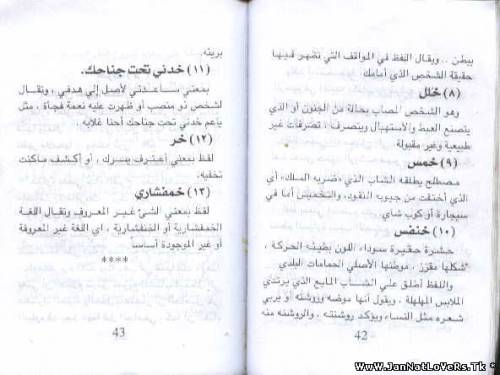 يبطن .. ويقال اللفظ في المواقف التي تظهر فيها
حقيقة الشخص الذي أمامك
(٨) خلل
وهو الشخص المصاب بحالة من الجنون أو الذي
يتصنع العبط والاستهبال ويتصرف ، تصرفات غير
طبيعية وغير مقبولة
(٩) خمس
مصطلح يطلقه الشاب الذي «ضربه السلك» أي
الذي أختفت من جيوبه النقود، والتخميس أما في
سيجارة أو كوب شاي
(١٠) خنفس
حشرة حقيرة سوداء اللون بطيئه الحركة ،
شكلها مقزز ، موطنها الأصلي الحمامات البلدي
واللفظ أطلق علي الشاب المايع الذي يرتدي
الملابس المهلهلة ، ويقول أنها موضه وروشنه أو يربي
شعره مثل النساء ويؤكد روشنته ، والروشنه منه
42
بريئه.
(١١) خدني تحت جناحك.
بمعني ساعدني لأصل إلي هدفي ، وتقال
لشخص ذو منصب أو ظهرت عليه نعمة فجأة ، مثل
ياعم خدني تحت جناحك أحنا غلابه
(١٢) خر
لفظ بمعني أعترف بسرك ، أو أكشف ماكنت
تخفيه.
(١٣) خمفشاري
لفظ بمعني الشئ غير المعروف وتقال اللغة
الخمفشارية أو الخنفشارية ، اي اللغة غير المعروفة
أو غير الموجودة أساسا
****
43
Www.JanNatLoVeRs.Tk ®